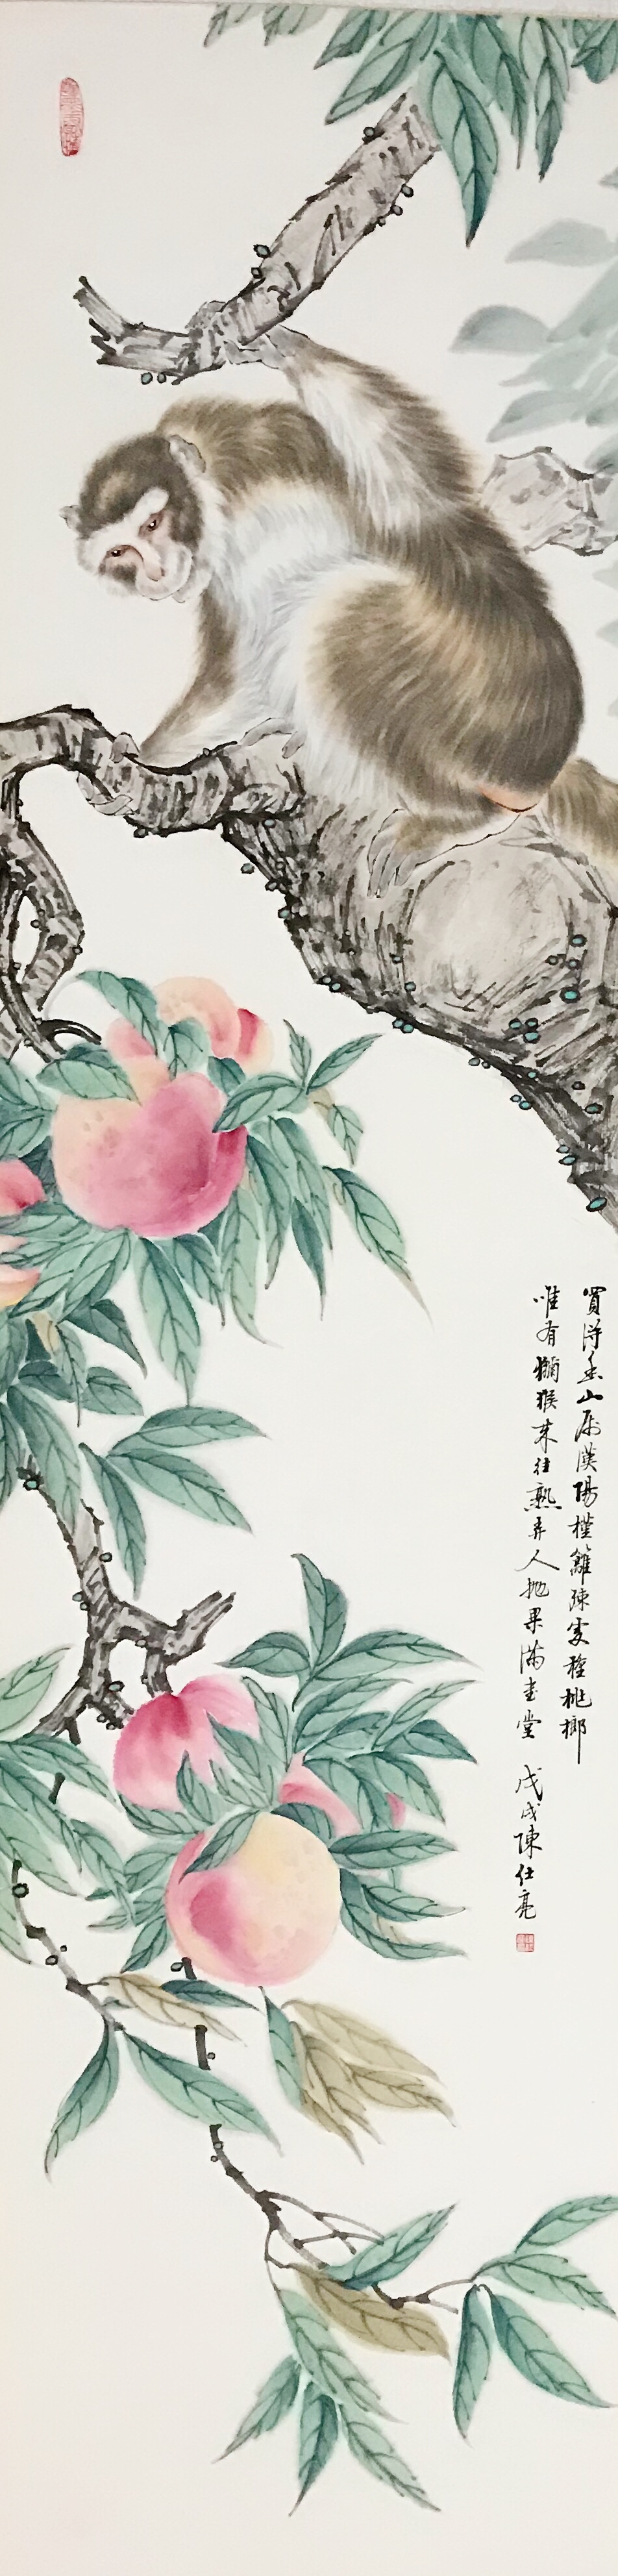 買得魚山属漢陽槿籬疎處種桃榔
唯有獼猴来往熟弄人抛果滿書堂
戊戌陳仕亮